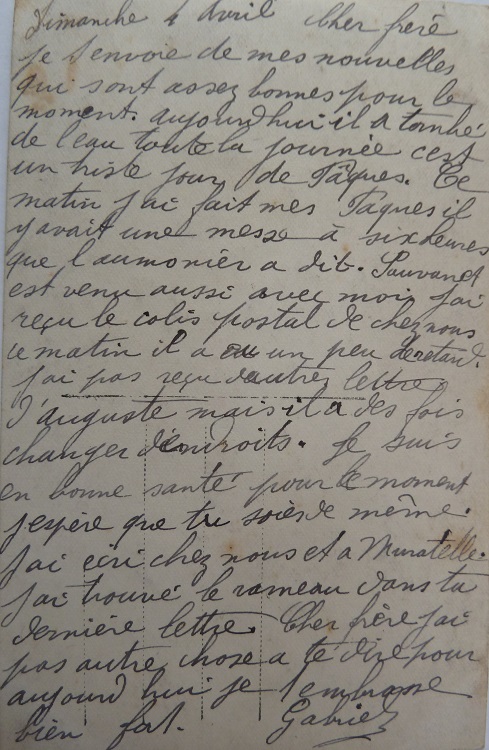 Dimanche 4 Avril Cher frère
je t'envoie de mes nouvelles
qui sont assez bonnes pour le
moment. aujourd'hui il a tombé
de l'eau toute la journée c'est
un triste jour de Pâques. Ce
matin j'ai fait mes Pâques il
y avait une messe à six heures
que l'aumonier a dit. Sauvanet
est venu aussi avec moi j'ai
reçu le colis postal de chez nous
ce matin il a eu un peu de retard.
j'ai pas reçu d'autre lettre
d'auguste mais il a des fois
changer d'endroits. Je suis
en bonne santé pour le moment
j'espère que tu soies de même.
j'ai écri chez nous et a Muratelle.
j'ai trouvé le rameau dans ta
dernière lettre. Cher frère j'ai
pas autre chose a te dire pour
aujourd'hui je t'embrasse
bien fort. Gabriel